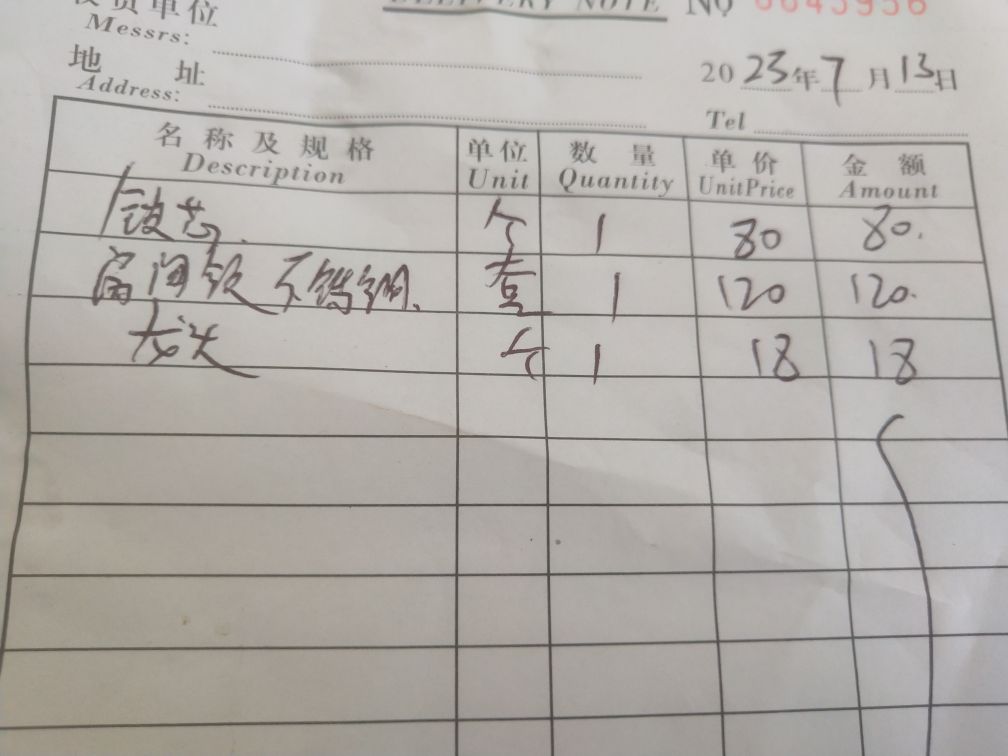 收货单位
Messrs:
DELIVERY NOTE No 0045956
地 址
Address:
2023年7月13日
Tel
名称及规格 单位 数量 单价 金额
Description Unit Quantity UnitPrice Amount
锁芯. 个 1 80 80.
房间锁 不锈钢. 套 1 120 120.
龙头 个 1 18 18